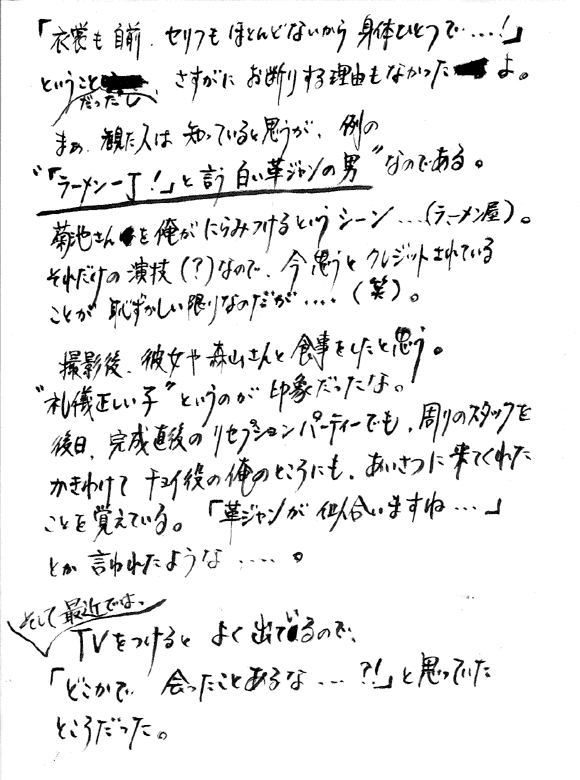 「衣裳も自前、セリフもほとんどないから身体ひとつで……!」
ということだったし、さすがにお断りする理由もなかったよ。
まぁ、観た人は知っていると思うが、例の
"「ラーメン一丁!」と言う白い革ジャンの男"なのである。
菊池さんを俺がにらみつけるというシーン…(ラーメン屋)。
それだけの演技(?)なので、今思うとクレジットされている
ことが恥ずかしい限りなのだが……(笑)。
撮影後、彼女や森山さんと食事をしたと思う。
"礼儀正しい子"というのが印象だったな。
後日、完成直後のリセプションパーティーでも、周りのスタッフを
かきわけてチョイ役の俺のところにも、あいさつに来てくれた
ことを覚えている。「革ジャンが似合いますね…」
とか言われたような……。
そして最近では、
TVをつけるとよく出ているので、
「どこかで会ったことあるな…?!」と思っていた
ところだった。